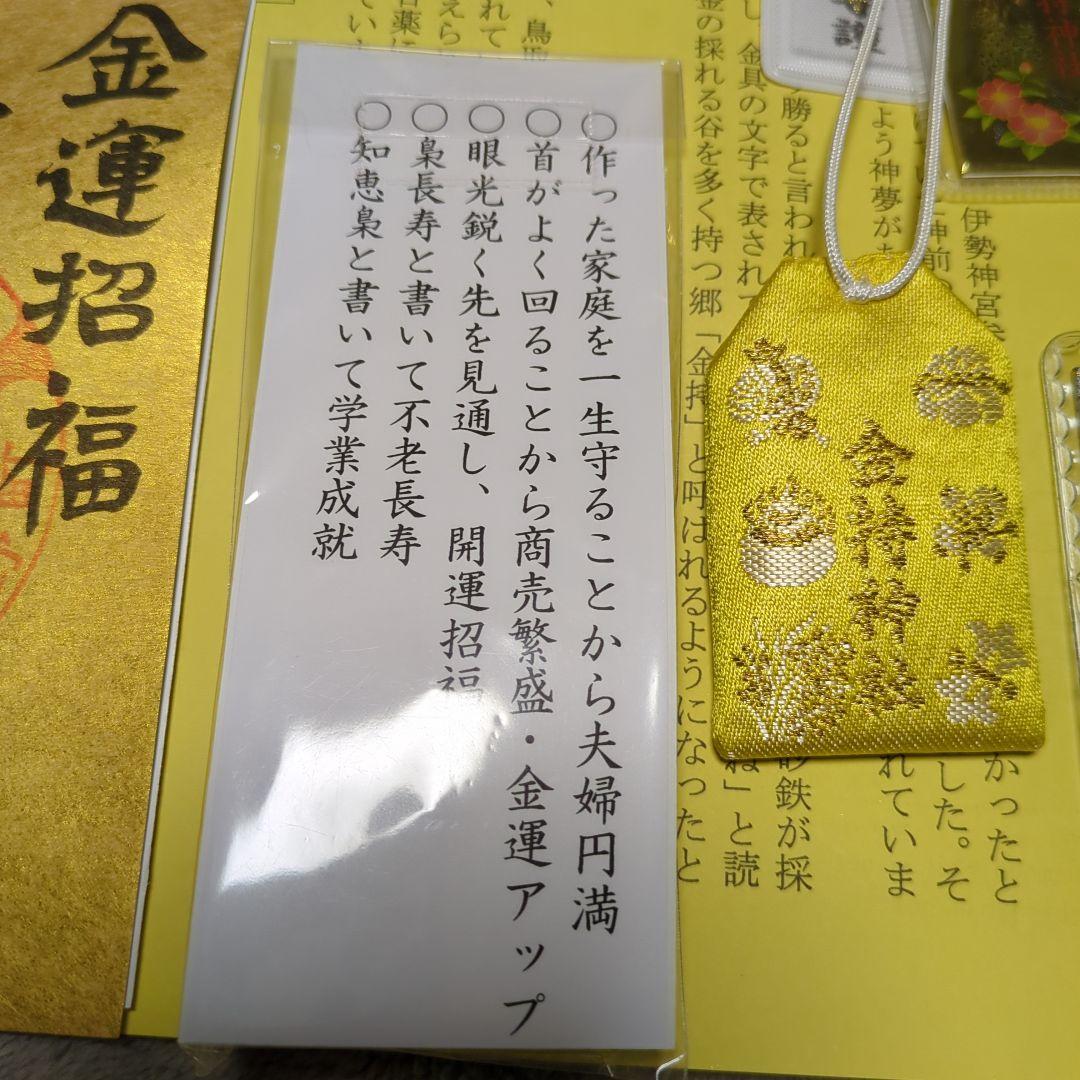 金運招福
○作った家庭を一生守ることから夫婦円満
○首がよく回ることから商売繁盛・金運アップ
○眼光鋭く先を見通し、開運招福
○梟長寿と書いて不老長寿
○知恵梟と書いて学業成就
金持神社
伊勢神宮
かったと
神前
した。そ
よう神夢が
れていま
勝ると言われ
砂鉄が採
金具の文字で表され
ね」と読
金の採れる谷を多く持つ郷「金持」と呼ばれるようになったと